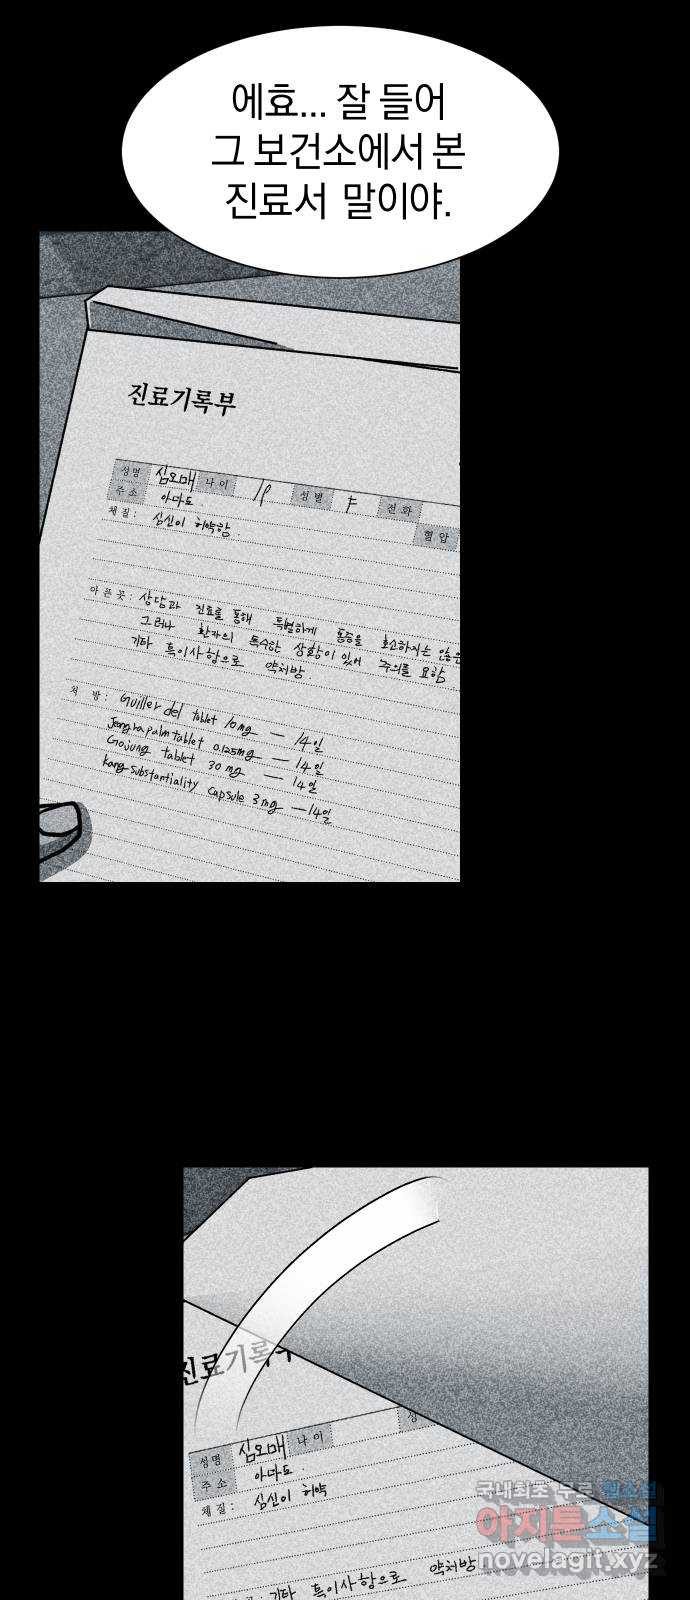 에효... 잘 들어
그 보건소에서 본
진료서 말이야.
진료기록부
성명 심오매 나이 19 성별 루 전화
주소 아마도
혈압
체질: 심신이 허약함.
아픈곳: 상담과 진료를 통해 특별하게 통증을 호소하지는 않은
그러나 환자의 특수한 상황이 있어 주의를 요함
기타 특이사항으로 약처방.
처방: Guiller del tablet 10mg — 14일
Jeongrapalm tablet 0.125mg — 14일
Gojung tablet 30mg — 14일
kangsubstantiality capsule 3mg — 14일
진료기록부
성명 심오매 나이 성
주소 아마도
체질: 심신이 허약
기타 특이사항으로 약처방
국내최초 무료 웹소설
아지툰소설
novelagit.xyz